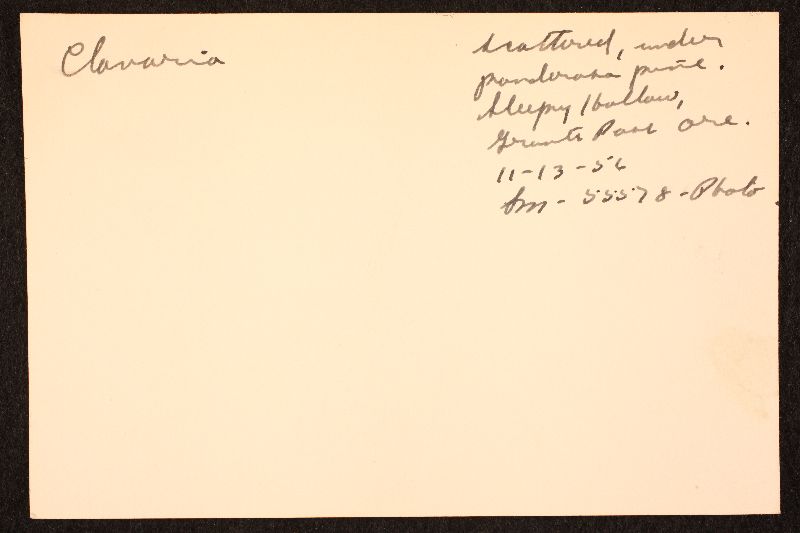 Clavaria
Scattered, under
ponderosa pine.
Sleepy Hollow,
Grants Pass Ore.
11-13-56
Sm - 55578 - Photo.